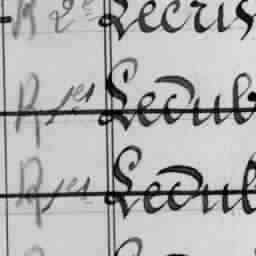 R 2e Lecris
R 1er Ledub
R 1er Ledub